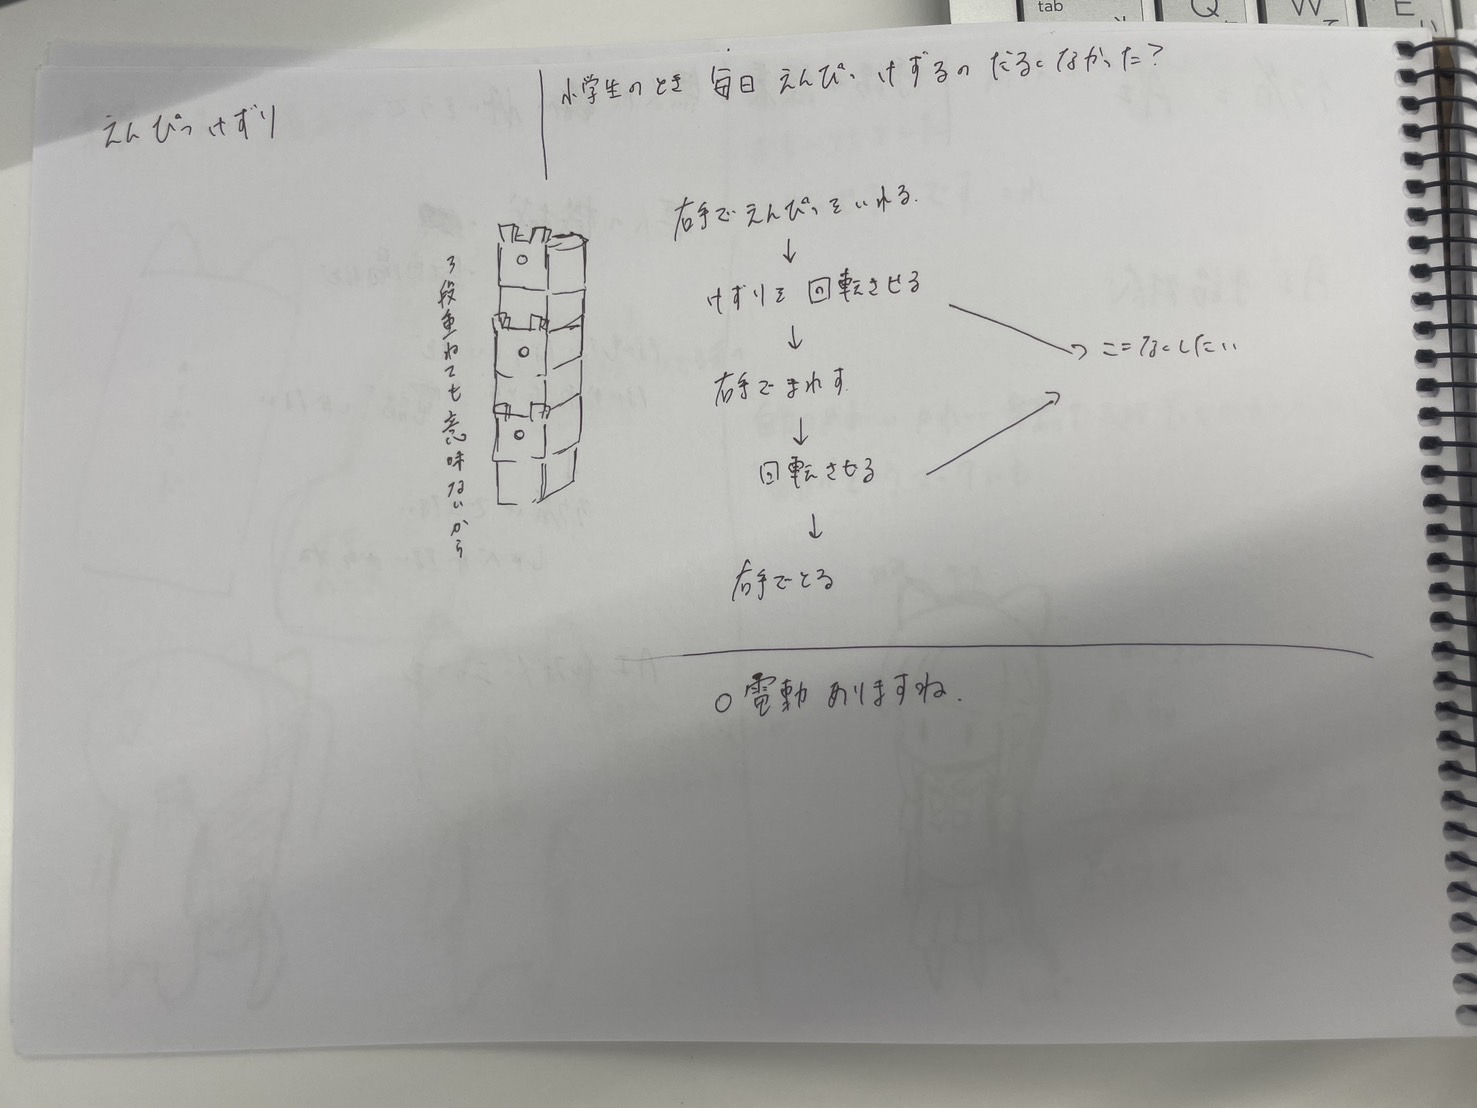 tab
Q
W
て
E
い
えんぴつけずり
小学生のとき 毎日 えんぴつ けずるの だるくなかった?
3段重ねても意味ないから
右手でえんぴつをいれる.
↓
けずりを 回転させる
↓
右手でまわす
↓
回転させる
↓
右手でとる
ここなくしたい
○電動 ありますね.